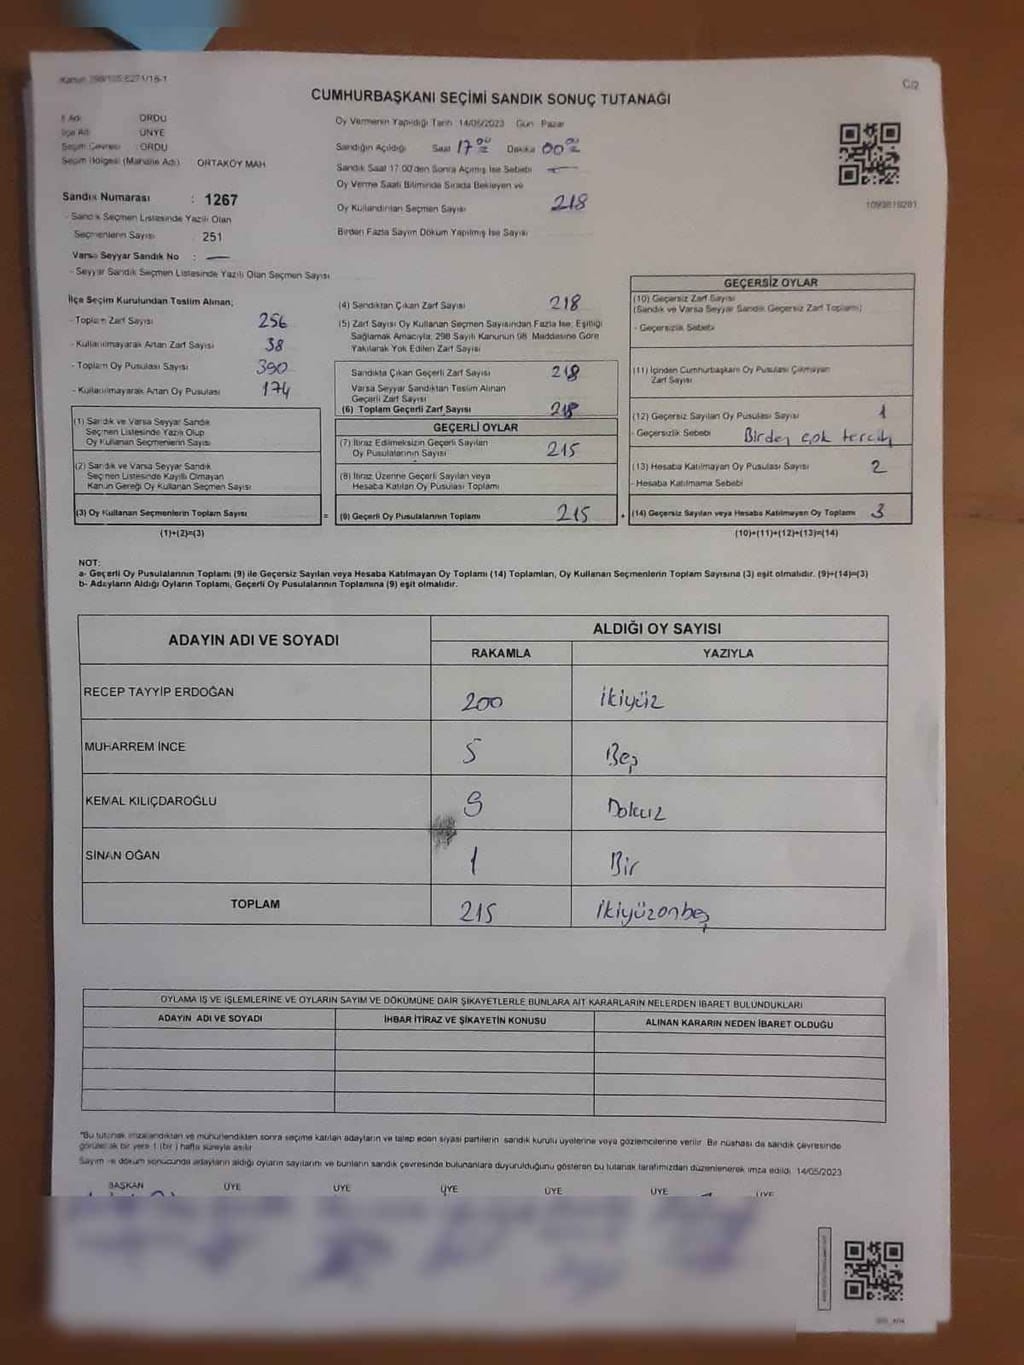 Kanun 298/105:6271/16-1
C/2
CUMHURBAŞKANI SEÇİMİ SANDIK SONUÇ TUTANAĞI
İl Adı ORDU
İlçe Adı ÜNYE
Seçim Çevresi : ORDU
Seçim Bölgesi (Mahalle Adı) ORTAKÖY MAH
Sandık Numarası : 1267
- Sandık Seçmen Listesinde Yazılı Olan
Seçmenlerin Sayısı 251
Varsa Seyyar Sandık No : —
- Seyyar Sandık Seçmen Listesinde Yazılı Olan Seçmen Sayısı
Oy Vermenin Yapıldığı Tarih 14/05/2023 Gün Pazar
Sandığın Açıldığı Saat 17 00 Dakika 00 00
Sandık Saat 17:00'den Sonra Açılmış İse Sebebi —
Oy Verme Saati Bitiminde Sırada Bekleyen ve
Oy Kullandırılan Seçmen Sayısı 218
Birden Fazla Sayım Döküm Yapılmış İse Sayısı
İlçe Seçim Kurulundan Teslim Alınan;
- Toplam Zarf Sayısı 256
- Kullanılmayarak Artan Zarf Sayısı 38
- Toplam Oy Pusulası Sayısı 390
- Kullanılmayarak Artan Oy Pusulası 174
(1) Sandık ve Varsa Seyyar Sandık
Seçmen Listesinde Yazılı Olup
Oy Kullanan Seçmenlerin Sayısı
(2) Sandık ve Varsa Seyyar Sandık
Seçmen Listesinde Kayıtlı Olmayan
Kanun Gereği Oy Kullanan Seçmen Sayısı
(3) Oy Kullanan Seçmenlerin Toplam Sayısı =
(1)+(2)=(3)
(4) Sandıktan Çıkan Zarf Sayısı 218
(5) Zarf Sayısı Oy Kullanan Seçmen Sayısından Fazla İse, Eşitliği
Sağlamak Amacıyla, 298 Sayılı Kanunun 98. Maddesine Göre
Yakılarak Yok Edilen Zarf Sayısı
Sandıkta Çıkan Geçerli Zarf Sayısı 218
Varsa Seyyar Sandıktan Teslim Alınan
Geçerli Zarf Sayısı
(6) Toplam Geçerli Zarf Sayısı 218
GEÇERLİ OYLAR
(7) İtiraz Edilmeksizin Geçerli Sayılan
Oy Pusulalarının Sayısı 215
(8) İtiraz Üzerine Geçerli Sayılan veya
Hesaba Katılan Oy Pusulası Toplamı
(9) Geçerli Oy Pusulalarının Toplamı 215 +
GEÇERSİZ OYLAR
(10) Geçersiz Zarf Sayısı
(Sandık ve Varsa Seyyar Sandık Geçersiz Zarf Toplamı)
- Geçersizlik Sebebi
(11) İçinden Cumhurbaşkanı Oy Pusulası Çıkmayan
Zarf Sayısı
(12) Geçersiz Sayılan Oy Pusulası Sayısı 1
- Geçersizlik Sebebi Birden çok tercih
(13) Hesaba Katılmayan Oy Pusulası Sayısı 2
- Hesaba Katılmama Sebebi
(14) Geçersiz Sayılan veya Hesaba Katılmayan Oy Toplamı 3
(10)+(11)+(12)+(13)=(14)
NOT:
a- Geçerli Oy Pusulalarının Toplamı (9) ile Geçersiz Sayılan veya Hesaba Katılmayan Oy Toplamı (14) Toplamları, Oy Kullanan Seçmenlerin Toplam Sayısına (3) eşit olmalıdır. (9)+(14)=(3)
b- Adayların Aldığı Oyların Toplamı, Geçerli Oy Pusulalarının Toplamına (9) eşit olmalıdır.
ADAYIN ADI VE SOYADI ALDIĞI OY SAYISI
RAKAMLA YAZIYLA
RECEP TAYYİP ERDOĞAN 200 İkiyüz
MUHARREM İNCE 5 Beş
KEMAL KILIÇDAROĞLU 9 Dokuz
SİNAN OĞAN 1 Bir
TOPLAM 215 İkiyüzonbeş
OYLAMA İŞ VE İŞLEMLERİNE VE OYLARIN SAYIM VE DÖKÜMÜNE DAİR ŞİKAYETLERLE BUNLARA AİT KARARLARIN NELERDEN İBARET BULUNDUKLARI
ADAYIN ADI VE SOYADI İHBAR İTİRAZ VE ŞİKAYETİN KONUSU ALINAN KARARIN NEDEN İBARET OLDUĞU
*Bu tutanak imzalandıktan ve mühürlendikten sonra seçime katılan adayların ve talep eden siyasi partilerin sandık kurulu üyelerine veya gözlemcilerine verilir. Bir nüshası da sandık çevresinde
görülecek bir yere 1 (bir) hafta süreyle asılır.
Sayım ve döküm sonucunda adayların aldığı oyların sayılarını ve bunların sandık çevresinde bulunanlara duyurulduğunu gösteren bu tutanak tarafımızdan düzenlenerek imza edildi. 14/05/2023
BAŞKAN ÜYE ÜYE ÜYE ÜYE ÜYE ÜYE